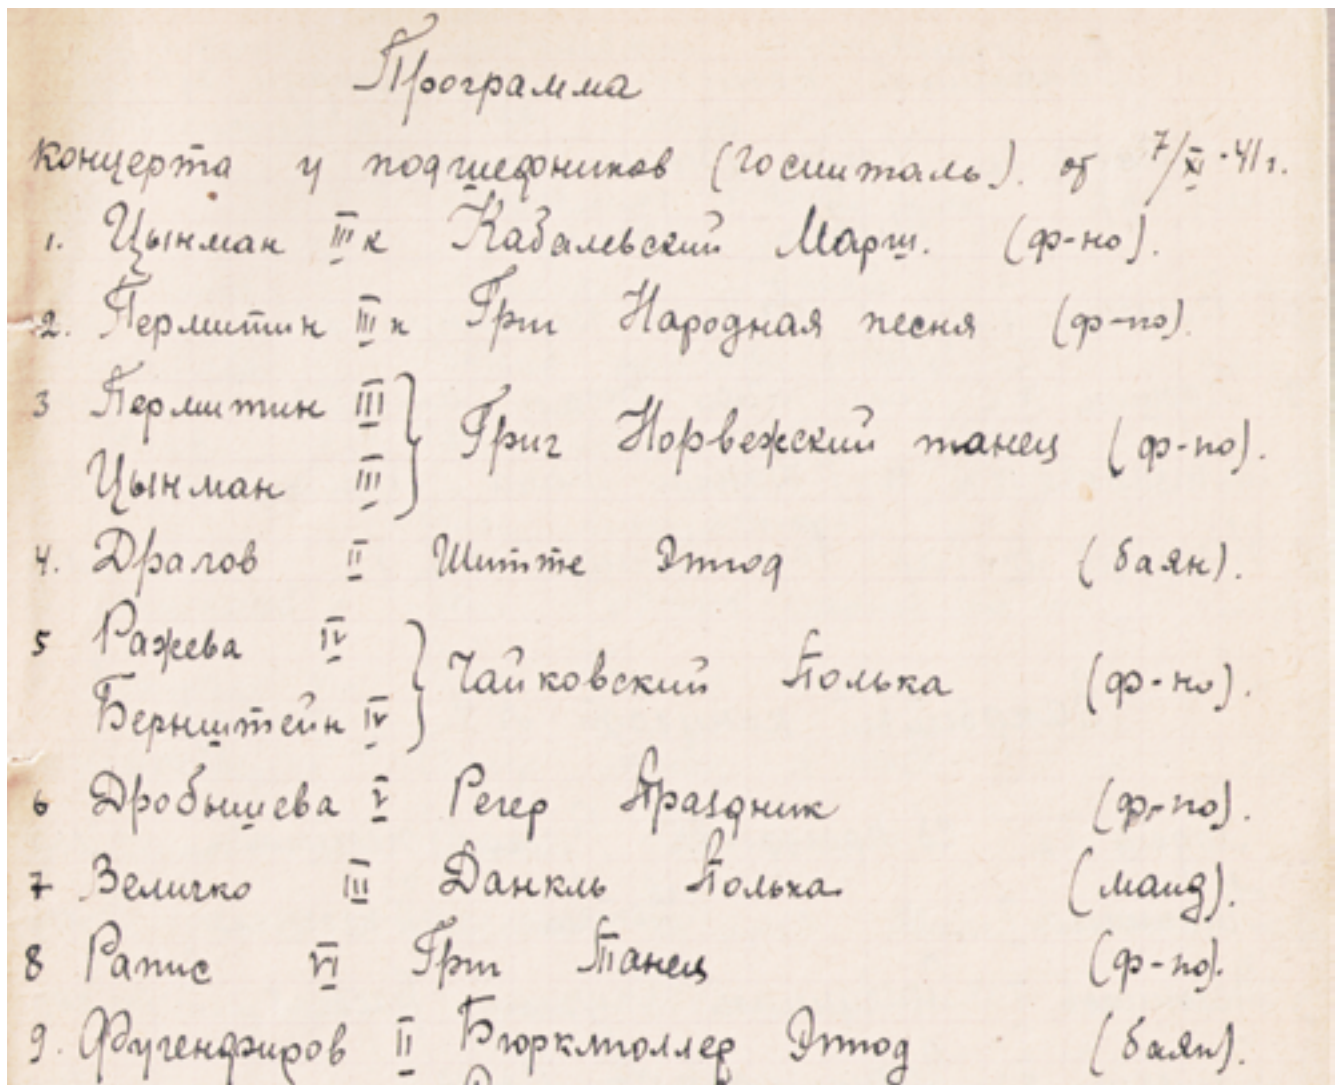 Программа
концерта у подшефников (госпиталь). от 7/XI-41 г.
1. Цынман III к Кабалевский Марш. (ф-но).
2. Пермитин III к Григ Народная песня (ф-по).
3 Пермитин III
Григ Норвежский танец (ф-по).
Цынман III
4. II Шитте Этюд (баян).
5 Ражева IV
Чайковский Полька (ф-но).
Бернштейн IV
6 Дробышева V Регер Праздник (ф-по).
7 Величко III Данкль Полька (манд).
8 VI Григ Танец (ф-по).
9. Фугенфиров II Бюркмюллер Этюд (баян).